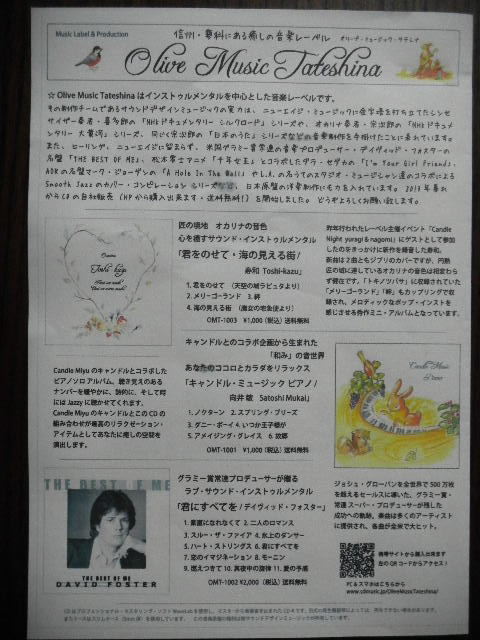 Music Label & Production
信州・蓼科にある癒しの音楽レーベル
オリーブ・ミュージック・タテシナ
Olive Music Tateshina
☆ Olive Music Tateshina はインストゥルメンタルを中心とした音楽レーベルです。
その制作チームであるサウンドデザインミュージックの実力は、ニューエイジ・ミュージックに金字塔を打ち立てたシンセ
サイザー奏者・喜多郎の「NHKドキュメンタリー シルクロード」シリーズや、オカリナ奏者・宗次郎の「NHKドキュメ
ンタリー 大黄河」シリーズ、同じく宗次郎の「日本のうた」シリーズなどの音楽制作を手掛けたことに表れています。
また、ヒーリング、ニューエイジに留まらず、米国グラミー賞常連の音楽プロデューサー・デイヴィッド・フォスターの
名盤「THE BEST OF ME」、松本零士アニメ「千年女王」とコラボしたデラ・セダカの「I'm Your Girl Friend」、
AORの名盤マーク・ジョーダンの「A Hole In The Wall」やL.A.の名うてのスタジオ・ミュージシャン達のコラボによる
Smooth Jazzのカバー・コンピレーション シリーズなど、日本原盤の洋楽制作にも力を入れています。2013年暮れ
からCDの自社販売(HPから購入出来ます・送料無料!)を開始しました。どうぞよろしくお願い致します。
匠の境地 オカリナの音色
心を癒すサウンド・インストゥルメンタル
「君をのせて・海の見える街/
寿和 Toshi-kazu」
1. 君をのせて (天空の城ラピュタより)
2. メリーゴーランド 3. 絆
4. 海の見える街 (魔女の宅急便より)
OMT-1003 ¥1,000 (税込) 送料無料
昨年行われたレーベル主催イベント「Candle
Night yuragi & nagomi」にゲストとして参加
したのをきっかけに新作を録音した寿和。
新曲は2曲ともジブリのカバーですが、円熟
匠の域に達しているオカリナの音色は相変わら
ず健在です。「トキノツバサ」に収録されていた
「メリーゴーランド」「絆」もカップリングで収
録され、メロディックなポップ・インストを
感じさせる秀作ミニ・アルバムとなっています。
キャンドルとのコラボ企画から生まれた
「和み」の音世界
あなたのココロとカラダをリラックス
「キャンドル・ミュージック ピアノ/
向井 敏 Satoshi Mukai」
1. ノクターン 2. スプリング・ブリーズ
3. ダニー・ボーイ 4. いつか王子様が
5. アメイジング・グレイス 6. 故郷
OMT-1001 ¥1,000 (税込) 送料無料
Candle Miyu のキャンドルとコラボした
ピアノソロアルバム。聴き覚えのある
ナンバーを緩やかに、詩的に、そして時
には Jazzy に聴かせてくれます。
Candle Miyu のキャンドルとこの CD の
組み合わせが最高のリラクゼーション・
アイテムとしてあなたに癒しの空間を
演出します。
Candle Music
Piano
THE BEST OF ME
THE BEST OF ME
DAVID FOSTER
グラミー賞常連プロデューサーが贈る
ラブ・サウンド・インストゥルメンタル
「君にすべてを / デイヴィッド・フォスター」
1. 素直になれなくて 2. 二人のロマンス
3. スルー・ザ・ファイア 4. 氷上のダンサー
5. ハート・ストリングス 6. 君にすべてを
7. 空のイマジネーション 8. モーニン
9. 燃えつきて 10. 真夜中の旋律 11. 愛の予感
OMT-1002 ¥2,000 (税込) 送料無料
ジョシュ・グローバンを全世界で 500 万枚
を超えるセールスに導いた、グラミー賞・
常連 スーパー・プロデューサーが残した
成功への軌跡。楽曲は多くのアーティスト
に提供され、各曲が全米で大ヒット。
携帯サイトから購入出来ます
左の QR コードからアクセス!
PC & スマホはこちらから
www.cdmusic.jp/OliveMusTateshina/